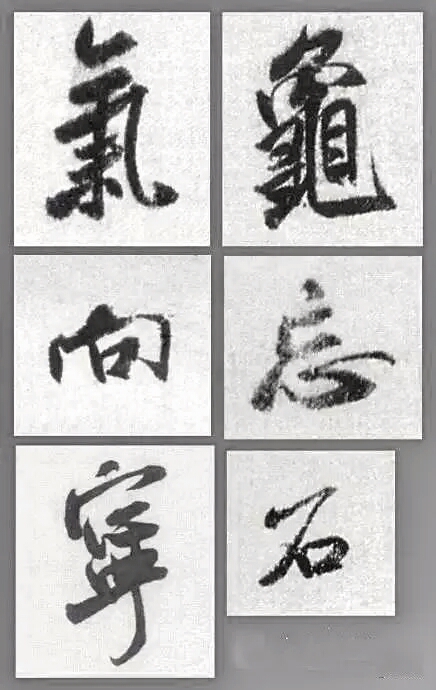 氣 龜
向 忘
寧 石